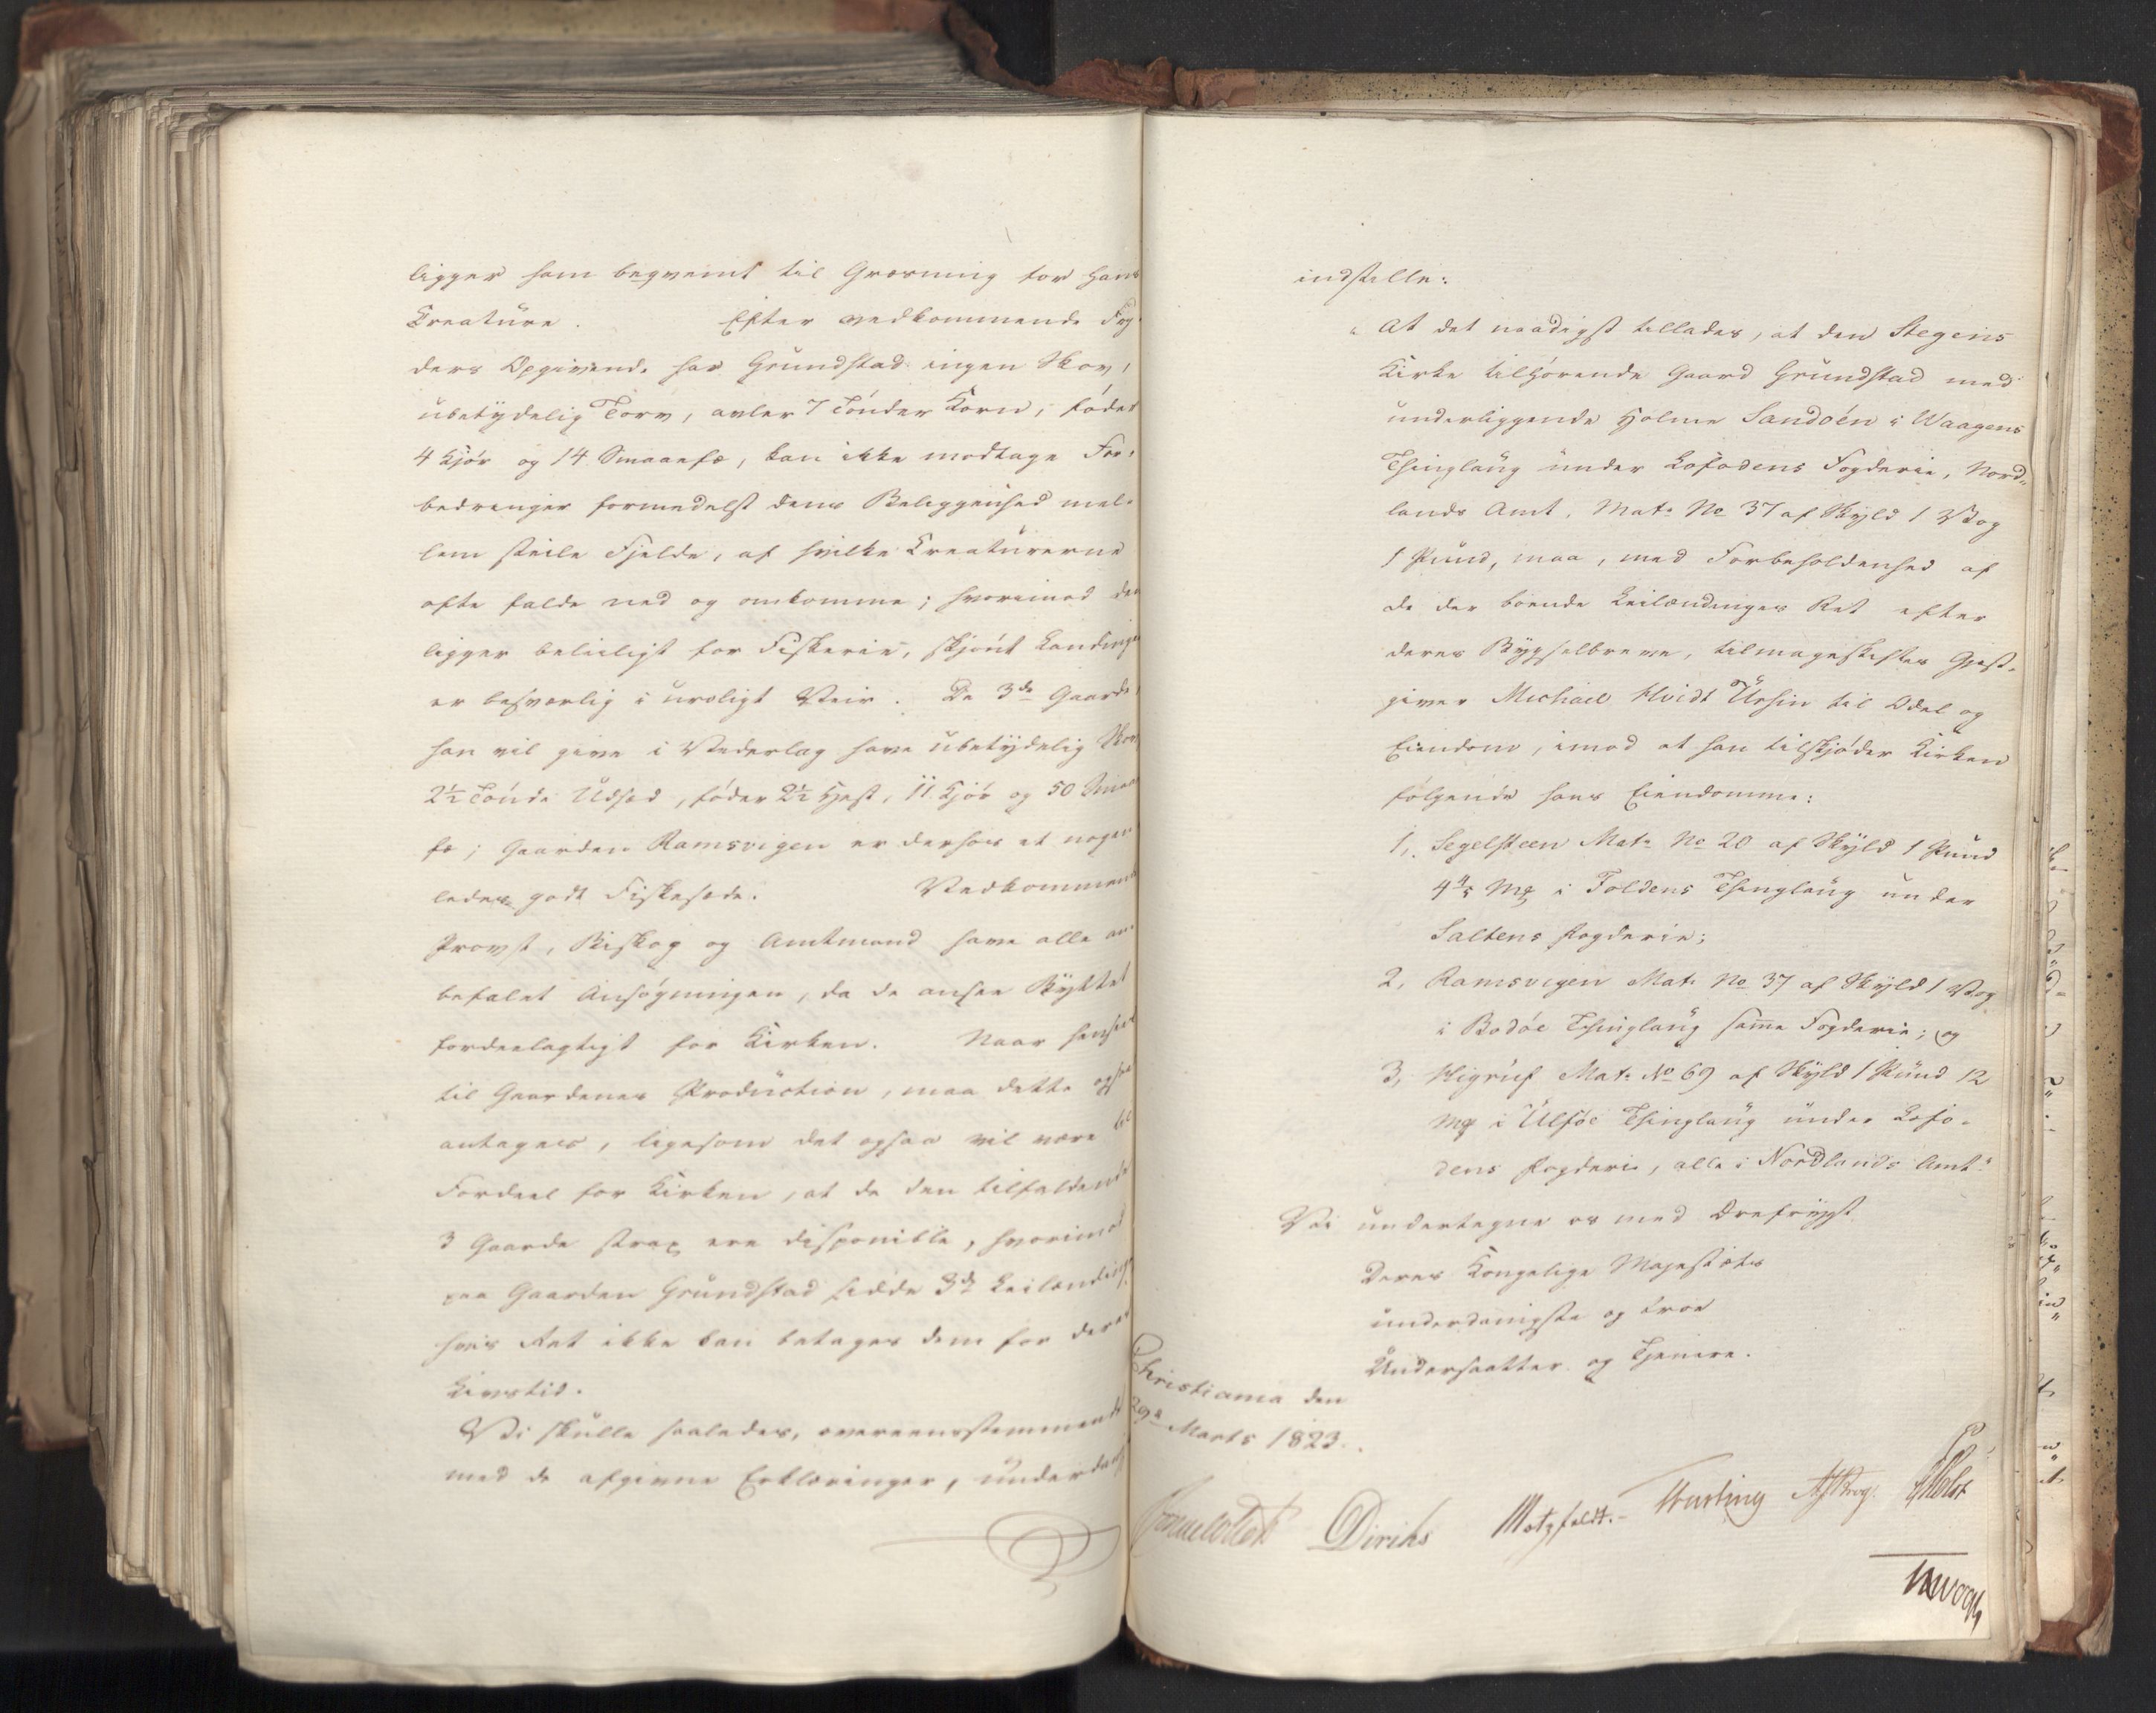 ligger som beqvemt til Græsning for hans
Creature. Efter vedkommende Fog-
ders Opgivende har Grundstad ingen Skov,
ubetydelig Torv, avler 7 Tønder Korn, føder
4 Kjør og 14 Smaaefæ, kan ikke modtage For-
bedringer formedelst dens Beliggenhed mel-
lem steile Fjelde, af hvilke Creaturerne
ofte falde ned og omkomme; hvorimod den
ligger beleiligt for Fiskerie, skjønt Landingen
er besværlig i uroligt Veir. De 3de Gaarde,
han vil give i Vederlag have ubetydelig Skov,
2½ Tønde Udsæd, føder 2½ Hest, 11 Kjør og 50 Smaae-
fæ; Gaarden Ramsvigen er derhos et nogen-
ledes godt Fiskesæde. Vedkommende
Provst, Biskop og Amtmand have alle an-
befalet Ansøgningen, da de ansee Byttet
fordeelagtigt for Kirken. Naar henseer
til Gaardenes Production, maa dette ogsaa
antages, ligesom det ogsaa vil være til
Fordeel for Kirken, at de den tilfaldende
3 Gaarde strax ere disponible, hvorimod
paa Gaarden Grundstad sidde 3de Leilændinge,
hvis Ret ikke kan betages dem for deres
Livstid.
Vi skulle saaledes, overeensstemmende
med de afgivne Erklæringer, underdanigst
indstille:
"At det naadigst tillades, at den Stegens
Kirke tilhørende Gaard Grundstad med
underliggende Holme Sandøen i Waagens
Thinglaug under Lofodens Fogderie, Nord-
lands Amt, Mat. No 37 af Skyld 1 Vog
1 Pund, maa, med Forbeholdenhed af
de der boende Leilændinges Ret efter
deres Bygselbreve, tilmageskiftes Gjest-
giver Michael Hvidt Ursin til Odel og
Eiendom, imod at han tilskjøder Kirken
følgende hans Eiendomme:
1, Segelsteen Mat. No 20 af Skyld 1 Pund
4 4/5 Mk i Foldens Thinglaug under
Saltens Fogderie;
2, Ramsvigen Mat. No 37 af Skyld 1 Vog
i Bodøe Thinglaug samme Fogderie; og
3, Higruf Mat. No 69 af Skyld 1 Pund 12
Mk i Ulføe Thinglaug under Lofo-
dens Fogderie, alle i Nordlands Amt."
Vi undertegne os med Ærefrygt
Deres Kongelige Majestæts
underdanigste og troe
Undersaatter og Tjenere.
Christiania den
29de Marts 1823.
Diriks Motzfeldt. Krog. Holst